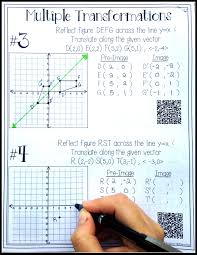 Multiple Transformations
#3
Reflect figure DEFG across the line y=x &
Translate along the given vector
D(2,0) E(2,2) F(5,2) G(5,1) , <-2,-4>
Pre-Image Image
D( 2 , 0 ) D'( -2 , -2 )
E( 2 , 2 ) E'( 0 , -2 )
F( 5 , 2 ) F'( , )
G( 5 , 1 ) G'( , )
#4
Reflect figure RST across the line y=x &
Translate along the given vector
R (2,-2) S(5,0) T(3,-1) , <-3,0>
Pre-Image Image
R( 2 , -2 ) R'( , )
S( 5 , 0 ) S'( , )
T( , ) T'( , )
R